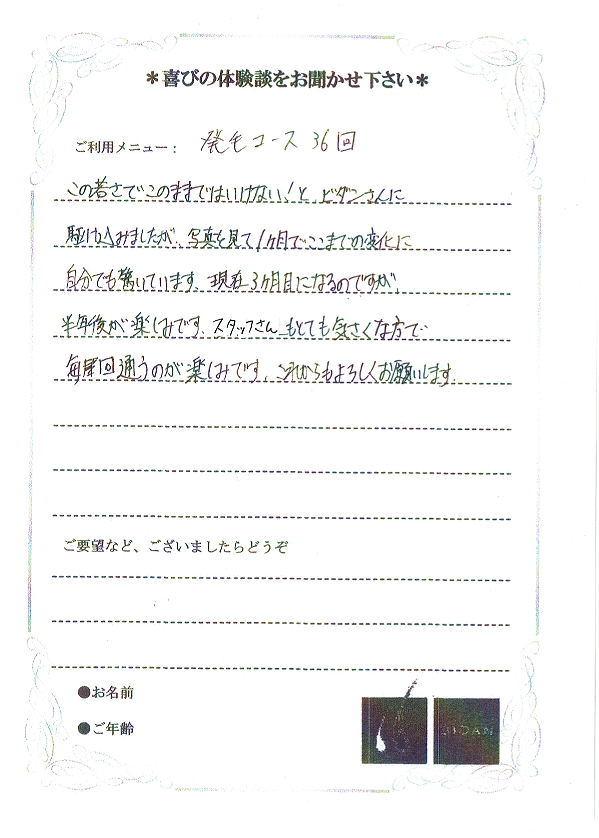 ＊喜びの体験談をお聞かせ下さい＊
ご利用メニュー： 発毛コース 36回
この若さでこのままではいけない！と、ビダンさんに
駆け込みましたが、写真を見て1ヶ月でここまでの変化に
自分でも驚いています。現在3ヶ月目になるのですが、
半年後が楽しみです。スタッフさんもとても気さくな方で
毎回通うのが楽しみです。これからもよろしくお願いします。
ご要望など、ございましたらどうぞ
●お名前
●ご年齢
BIDAN